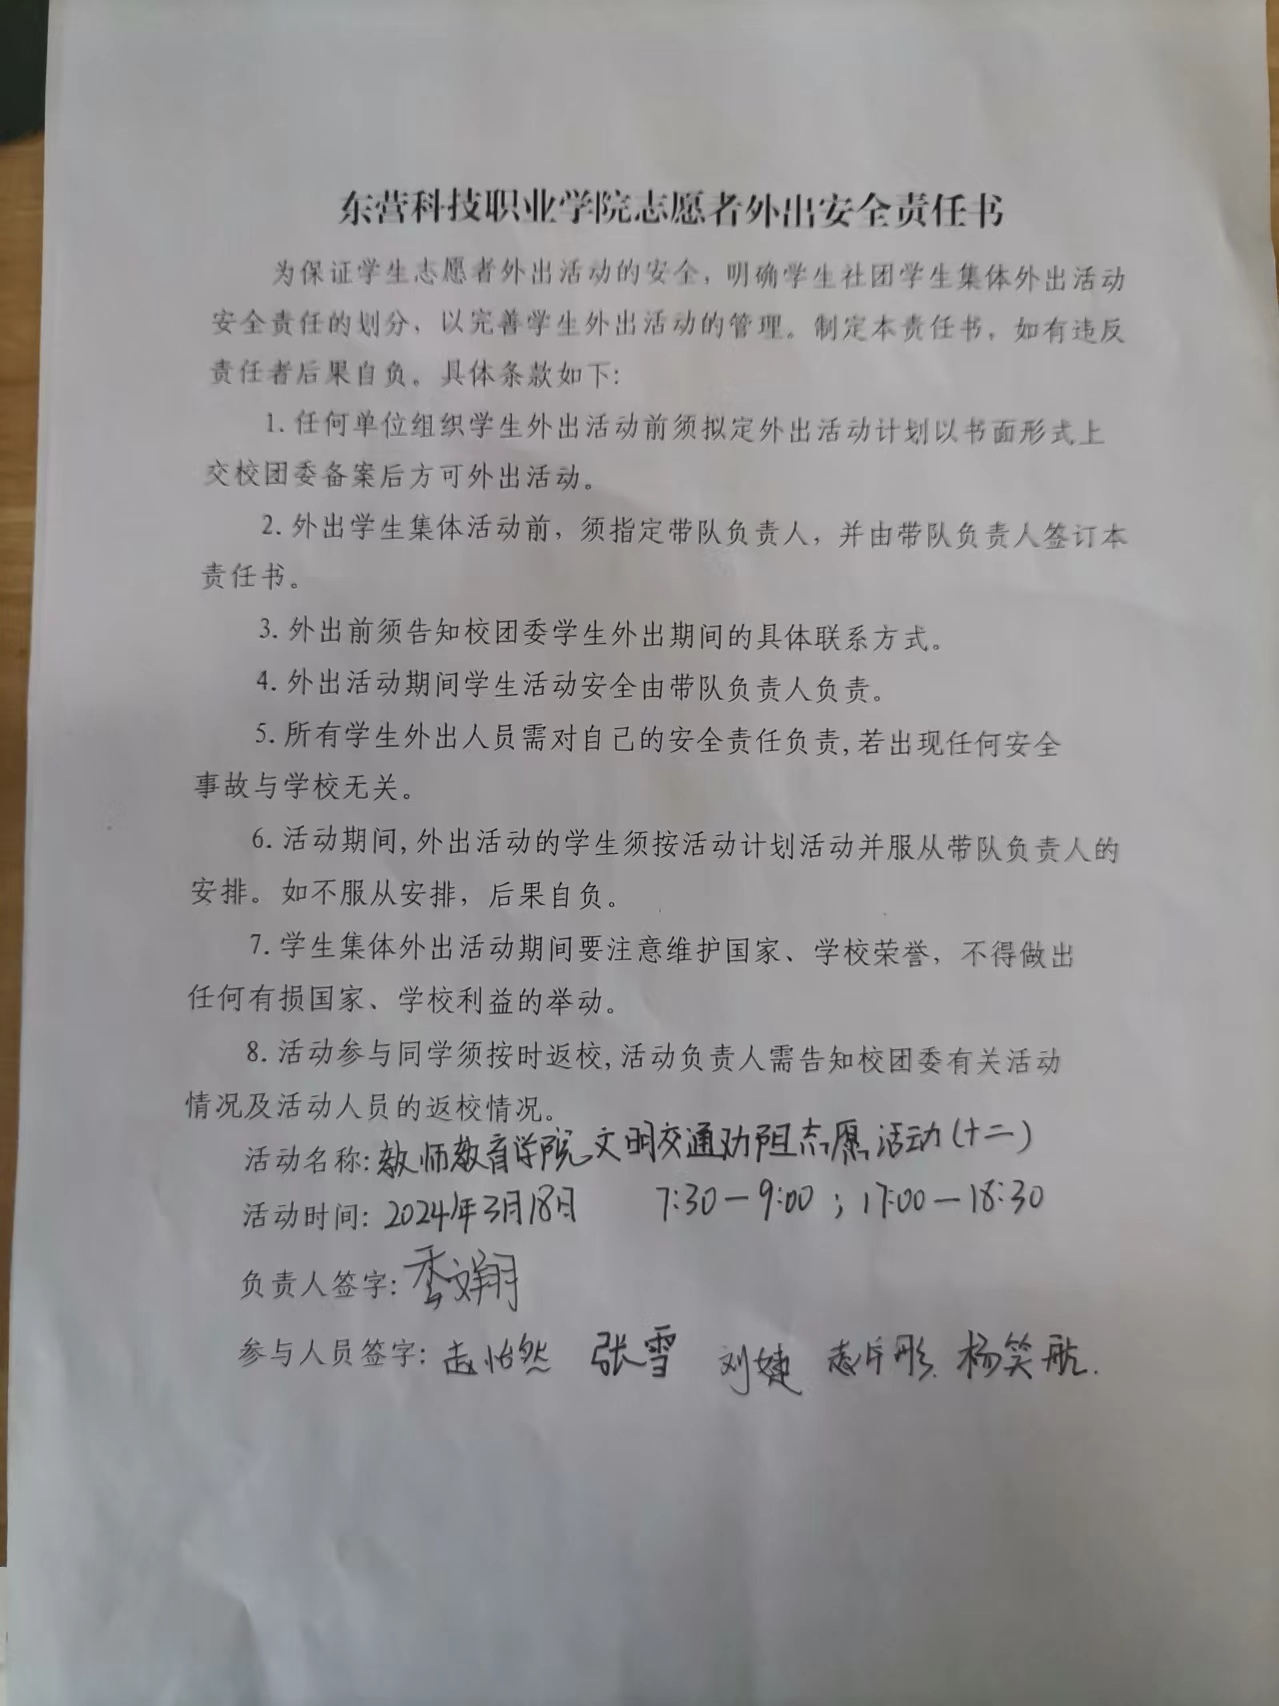 东营科技职业学院志愿者外出安全责任书
为保证学生志愿者外出活动的安全，明确学生社团学生集体外出活动
安全责任的划分，以完善学生外出活动的管理。制定本责任书，如有违反
责任者后果自负。具体条款如下：
1. 任何单位组织学生外出活动前须拟定外出活动计划以书面形式上
交校团委备案后方可外出活动。
2. 外出学生集体活动前，须指定带队负责人，并由带队负责人签订本
责任书。
3. 外出前须告知校团委学生外出期间的具体联系方式。
4. 外出活动期间学生活动安全由带队负责人负责。
5. 所有学生外出人员需对自己的安全责任负责,若出现任何安全
事故与学校无关。
6. 活动期间,外出活动的学生须按活动计划活动并服从带队负责人的
安排。如不服从安排，后果自负。
7. 学生集体外出活动期间要注意维护国家、学校荣誉，不得做出
任何有损国家、学校利益的举动。
8. 活动参与同学须按时返校,活动负责人需告知校团委有关活动
情况及活动人员的返校情况。
活动名称: 教师教育学院文明交通劝阻志愿活动(十二)
活动时间: 2024年3月18日 7:30—9:00；17:00—18:30
负责人签字: 季文翔
参与人员签字: 孟怡然 张雪 刘婕 杨笑航.